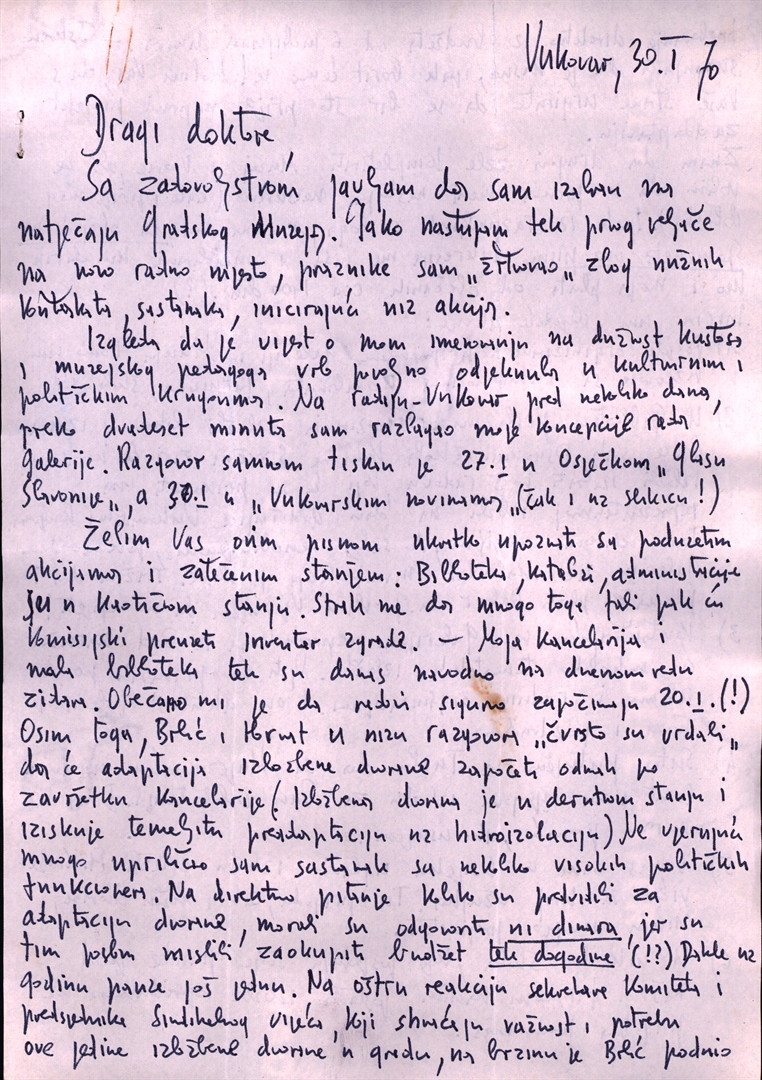 Vukovar, 30. I 70
Dragi doktore,
Sa zadovoljstvom javljam da sam izabran na
natječaju Gradskog Muzeja. Iako nastupam tek prvog veljače
na novo radno mjesto, praznike sam „žrtvovao„ zbog nužnih
kontakata, sastanaka, inicirajući niz akcija.
Izgleda da je vijest o mom imenovanju na dužnost kustosa
i muzejskog pedagoga vrlo povoljno odjeknula u kulturnim i
političkim krugovima. Na radiju-Vukovar, pred nekoliko dana,
preko dvadeset minuta sam razlagao moje koncepcije rada
galerije. Razgovor samnom tiskan je 27. I u Osječkom „Glasu
Slavonije„, a 30. I u „Vukovarskim novinama„ (čak i uz sliku !)
Želim Vas ovim pismom ukratko upoznati sa poduzetim
akcijama i zatečenim stanjem: Biblioteka, katalozi, administracija
su u kaotičnom stanju. Strah me da mnogo toga fali pak ću
komisijski preuzeti inventar zgrade. – Moja kancelarija i
mala biblioteka tek su danas navodno na dnevnom redu
zidara. Obećano mi je da radovi sigurno započinju 20. I. (!)
Osim toga, Brlić i Horvat u nizu razgovora „čvrsto su vrdali„
da će adaptacija izložbene dvorane započeti odmah po
završetku kancelarije (Izložbena dvorana je u derutnom stanju i
iziskuje temeljitu preadaptaciju uz hidroizolaciju) Ne vjerujući
mnogo upriličio sam sastanak sa nekoliko visokih političkih
funkcionera. Na direktno pitanje koliko su predvidili za
adaptaciju dvorane, morali su odgovoriti ni dinara, jer su
tim poslom mislili zaokupiti budžet tek dogodine (!?) Dakle uz
godinu pauze još jednu. Na oštru reakciju sekretara Komiteta i
predsjednika Sindikalnog vijeća, koji shvaćaju važnost i potrebu
ove jedine izložbene dvorane u gradu, na brzinu je Brlić podnio